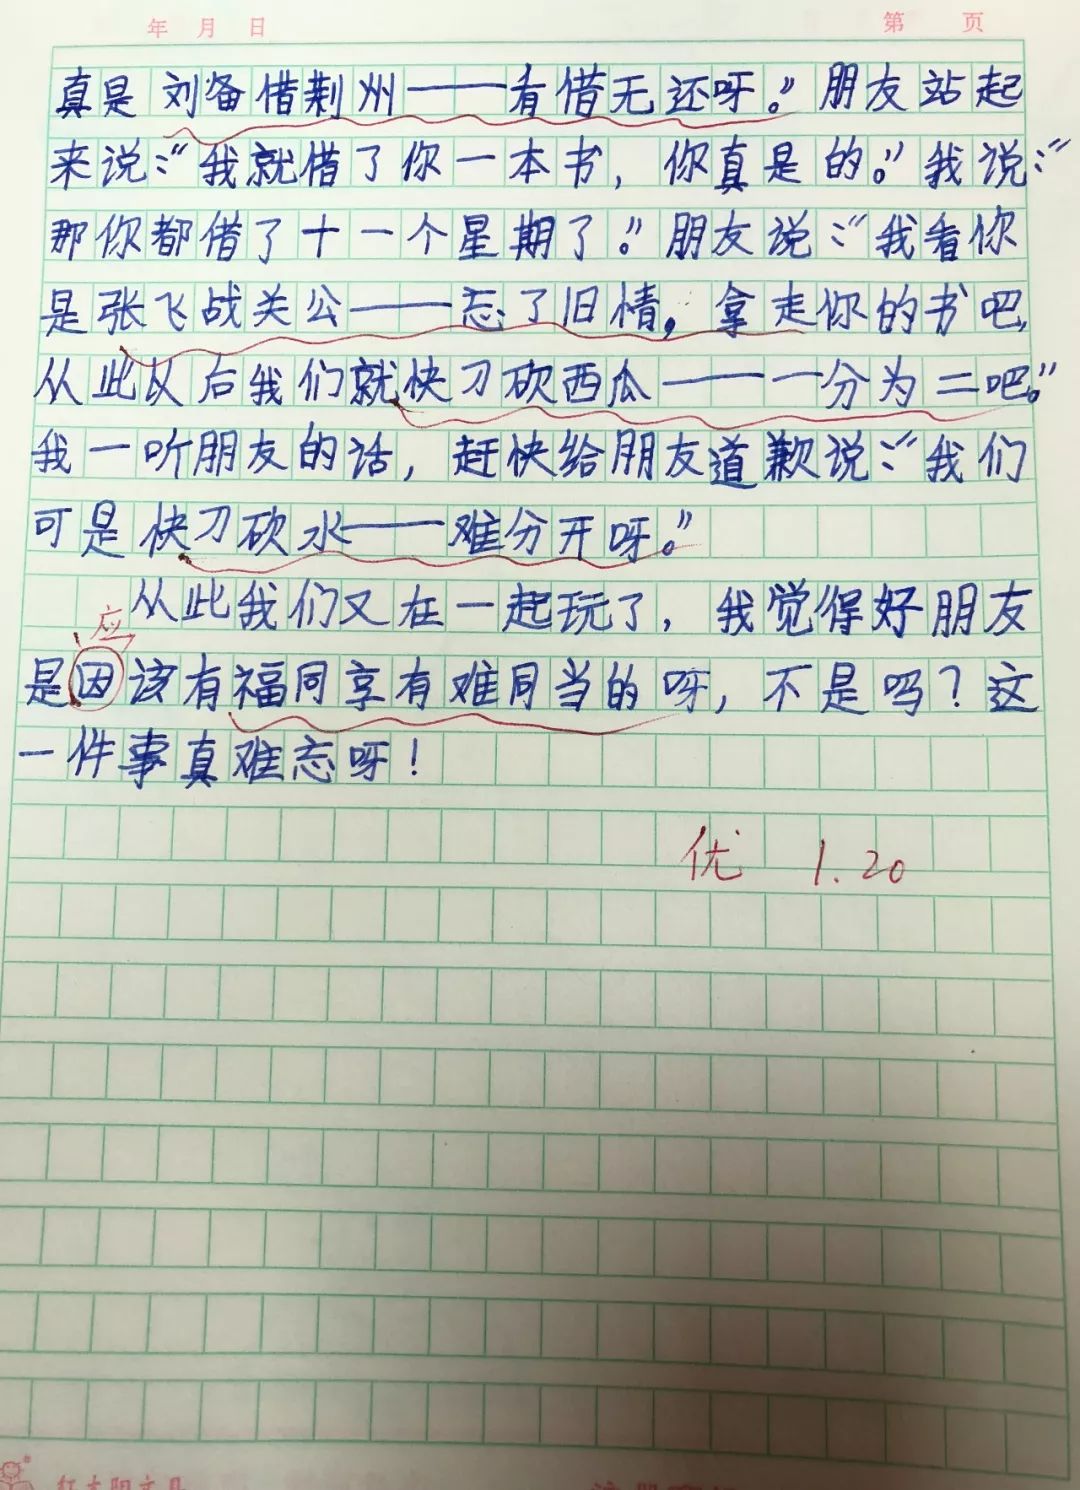 年 月 日 第 页
真是刘备借荆州——有借无还呀。”朋友站起
来说：“我就借了你一本书，你真是的。”我说：“
那你都借了十一个星期了。”朋友说：“我看你
是张飞战关公——忘了旧情，拿走你的书吧，
从此以后我们就快刀砍西瓜——一分为二吧。”
我一听朋友的话，赶快给朋友道歉说：“我们
可是快刀砍水——难分开呀。”
从此我们又在一起玩了，我觉得好朋友
应
是因该有福同享有难同当的呀，不是吗？这
一件事真难忘呀！
优 1.20